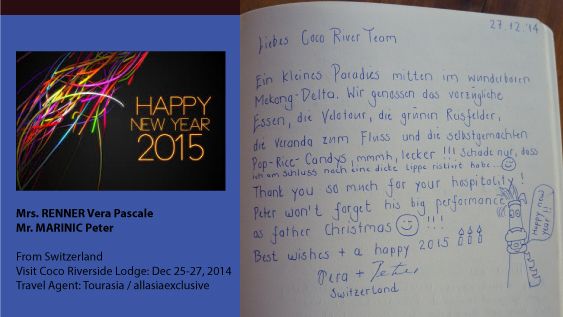 HAPPY
NEW YEAR
2015
Mrs. RENNER Vera Pascale
Mr. MARINIC Peter
From Switzerland
Visit Coco Riverside Lodge: Dec 25-27, 2014
Travel Agent: Tourasia / allasiaexclusive
27.12.'14
Liebes Coco River Team
Ein kleines Paradies mitten im wunderbaren
Mekong-Delta. Wir genossen das vorzügliche
Essen, die Velotour, die grünen Reisfelder,
die Veranda zum Fluss und die selbstgemachten
Pop-Rice-Candys, mmmh, lecker !!! Schade nur, dass
ich am Schluss noch eine dicke Lippe ristiert habe...
Thank you so much for your hospitality!
Peter won't forget his big performance
as father Christmas !!!
Best wishes + a happy 2015
Vera + Peter
Switzerland
Happy new
year!